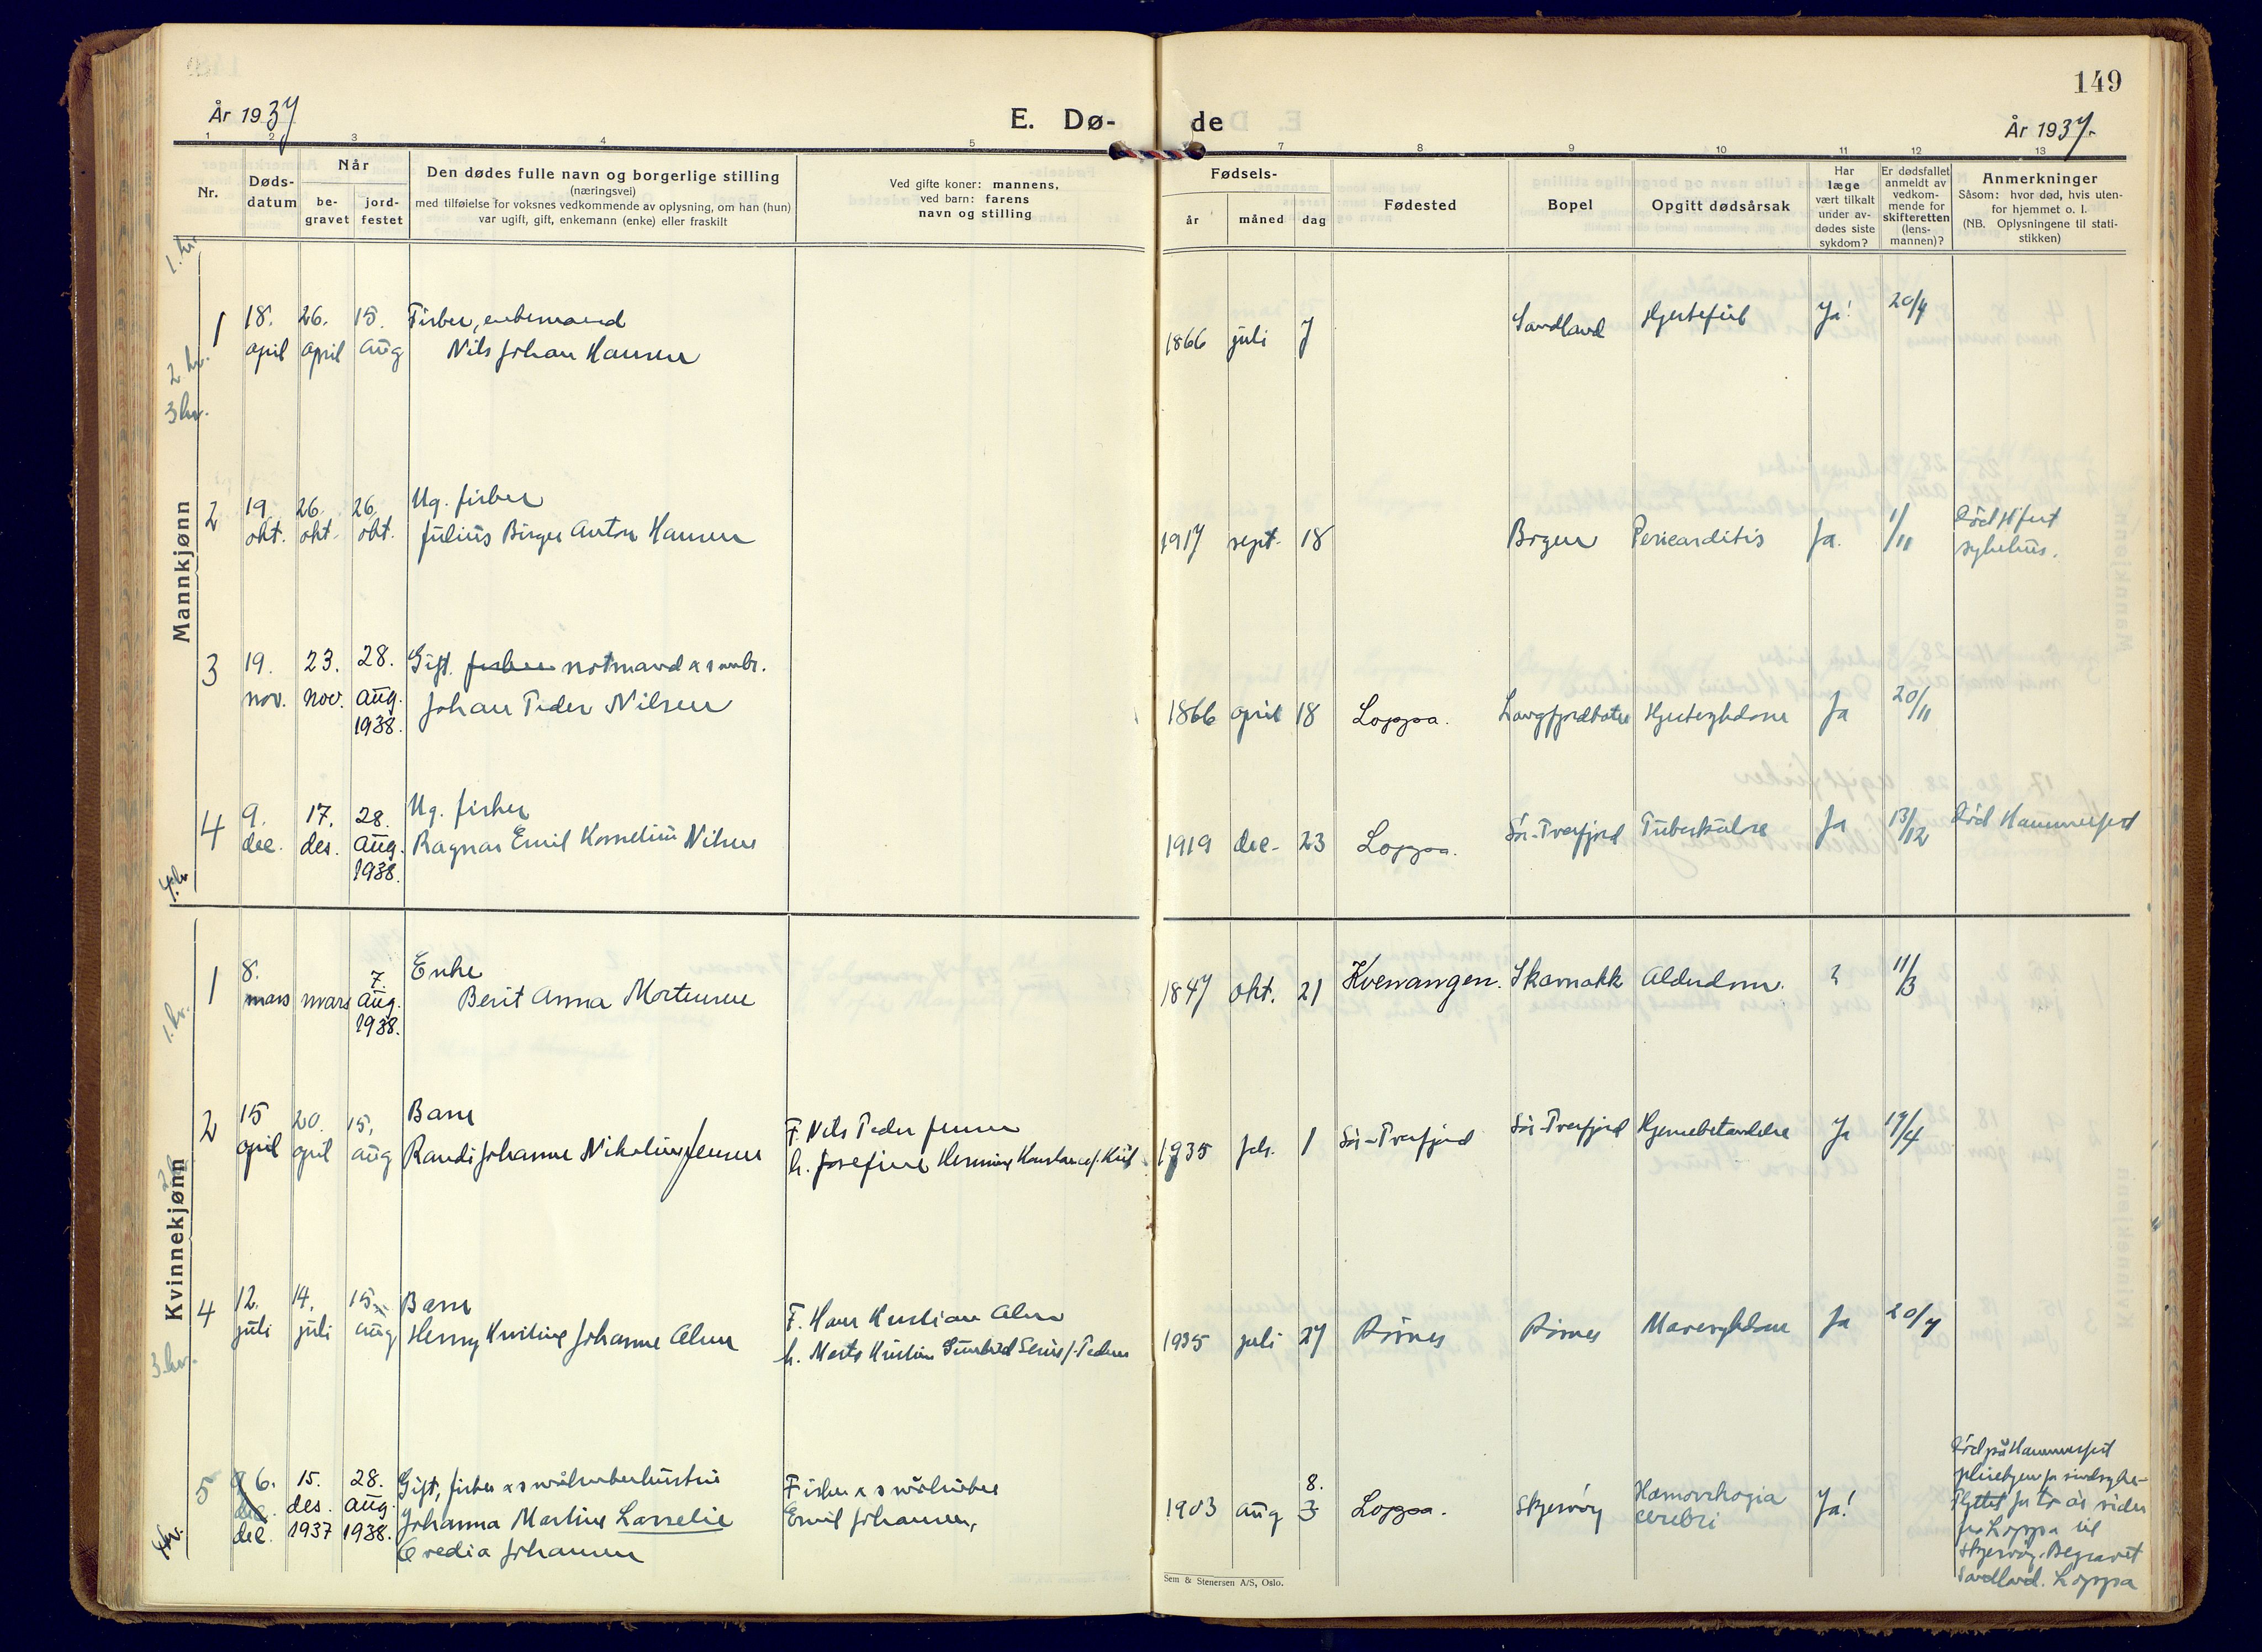 149
År 1937
E. Dø-
de
År 1937.
1 2 3 4 5 7 8 9 10 11 12 13
Nr.
Døds-
datum
Når
be-
gravet
jord-
festet
Den dødes fulle navn og borgerlige stilling
(næringsvei)
med tilføielse for voksnes vedkommende av oplysning, om han (hun)
var ugift, gift, enkemann (enke) eller fraskilt
Ved gifte koner: mannens,
ved barn: farens
navn og stilling
Fødsels-
år
måned
dag
Fødested
Bopel
Opgitt dødsårsak
Har
læge
vært tilkalt
under av-
dødes siste
sykdom?
Er dødsfallet
anmeldt av
vedkom-
mende for
skifteretten
(lens-
mannen)?
Anmerkninger
Såsom: hvor død, hvis uten-
for hjemmet o. l.
(NB. Oplysningene til stati-
stikken)
1. kv.
2 kv.
3 kv.
Mannkjønn
4. kv
1 18. 26. 15. Fisker, enkemand
april april aug Nils Johan Hansen
1866 juli 7 Sandland Hjertefeil Ja! 20/4
2 19. 26. 26. Ug. fisker
okt. okt. okt. Julius Birger Anton Hansen
1917 sept. 18 Bogen Pericarditis Ja. 1/11 Død H.fest
sykehus.
3 19. 23. 28. Gift. fisker notmand
nov. nov. aug. Johan Peder Nilsen
1938.
1866 april 18 Loppa. Langfjordbotn Hjertesykdom Ja 20/11
4 9. 17. 28. Ug. fisker
dec. des. aug. Ragnar Emil Kornelius Nilsen
1938.
1919 dec. 23 Loppa. Sör-Tverfjord Tuberkulose Ja 13/12 Död Hammerfest
1. kv.
Kvinnekjønn
3. kv.
1 8. 7. Enke
mars mars aug. Berit Anna Mortensen
1938.
1847 okt. 21 Kvenangen. Skavnakk Alderdom. ? 11/3
2 15 20. 15. Barn
april april aug Randi Johanne Nikoline Jensen
F. Nils Peder Jensen
h. Josefine Hermine
1935 feb. 1 Sör-Tverfjord Sör-Tverfjord Hjernebetendelse Ja 17/4
4 12. 14. 15. Barn
juli juli aug Henny Kristine Johanne Olsen
F. Hans Kristian Olsen
h. Kristine
1935 juli 27 Mavesykdom Ja 20/7
5 6. 15. 28. Gift, fisker
dec. des. aug. Johanna Martine Lasselie
dec. 1937 1938. Credia Johansen
Fisker
Emil Johansen,
8.
1903 aug 3 Loppa. Skjervöy Hæmorrhagia
cerebri
Ja!
Död på Hammerfest
pleiehjem for sindsyke-
Flyttet for to år siden
fra Loppa til
Skjervöy. Begravet
Sandland. Loppa
Sem & Stenersen A/S, Oslo.